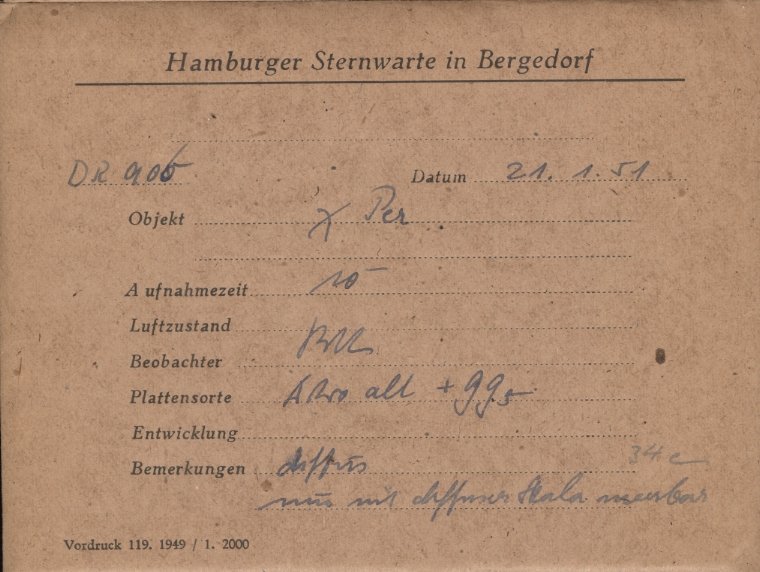 Hamburger Sternwarte in Bergedorf
DR 905 Datum 21. 1. 51
Objekt χ Per
Aufnahmezeit 10
Luftzustand
Beobachter
Plattensorte Astro alt + GG5
Entwicklung
Bemerkungen diffus 34c
nur mit diffuser Skala messbar
Vordruck 119. 1949 / 1. 2000